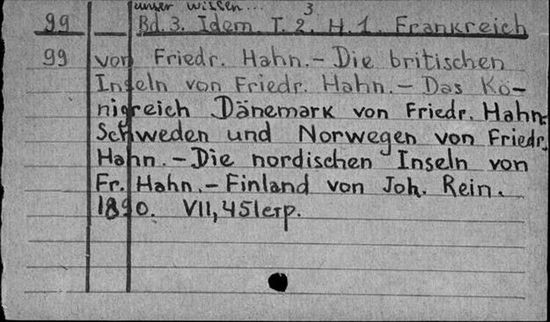 unser wissen...
3
99 Bd. 3. Idem. T. 2. H. 1. Frankreich
99 von Friedr. Hahn.- Die britischen
Inseln von Friedr. Hahn.- Das Kö-
nigreich Dänemark von Friedr. Hahn-
Schweden und Norwegen von Friedr.
Hahn.-Die nordischen Inseln von
Fr. Hahn.-Finland von Joh. Rein.
1890. VII, 451 стр.